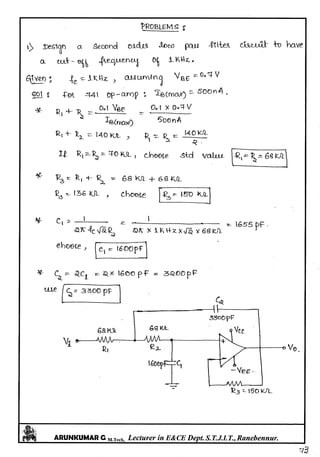 PROBLEMS :
1) Design a second order low pass filter circuit to have
a cut-off frequency of 1 KHz.
Given : fc = 1 KHz , assuming VBE = 0.7 V
Sol : For 741 op-amp : IB(max) = 500nA.
* R1 + R2 = 0.1 VBE / IB(max) = 0.1 x 0.7 V / 500nA
R1 + R2 = 140 KΩ , R1 = R2 = 140 KΩ / 2
If R1 = R2 = 70 KΩ , choose std value R1 = R2 = 68 KΩ
* R3 = R1 + R2 = 68 KΩ + 68 KΩ
R3 = 136 KΩ , choose R3 = 150 KΩ
* C1 = 1 / 2π fc √2 R2 = 1 / 2π x 1 KHz x √2 x 68KΩ = 1655 pF.
choose , C1 = 1600pF
* C2 = 2C1 = 2 x 1600 pF = 3200pF
use C2 = 3300 pF
C2
3300PF
68 KΩ 68 KΩ +VCC
Vi R1 R2 Vo.
1600pF C1
-VEE.
R3 = 150 KΩ.
ARUNKUMAR G M.Tech, Lecturer in E&CE Dept. S.T.J.I.T., Ranebennur.